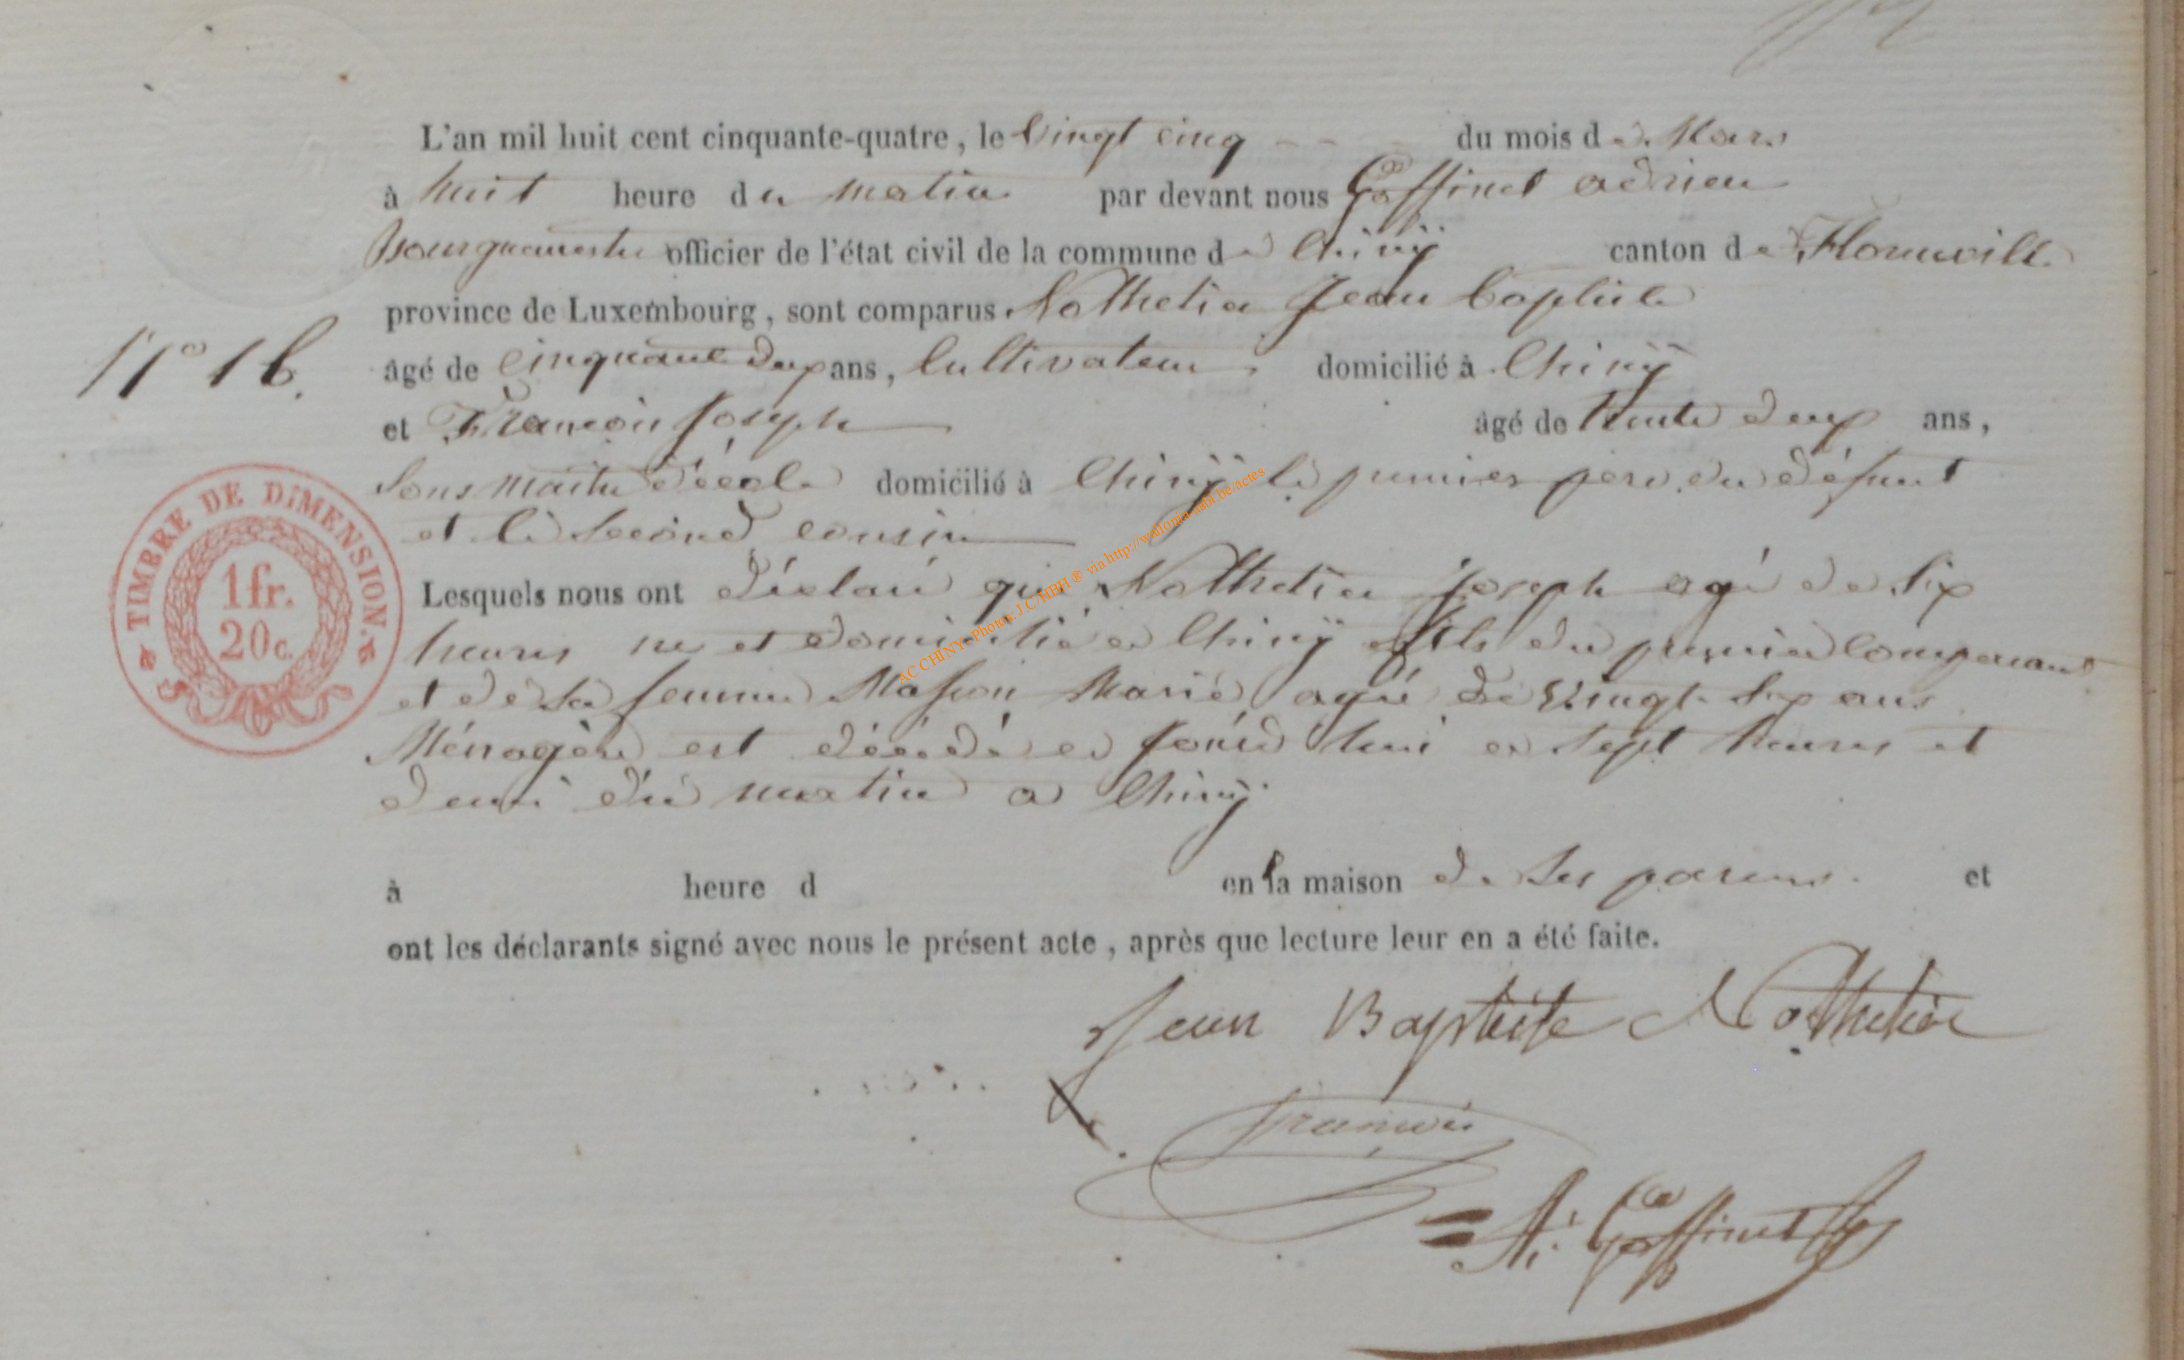 L'an mil huit cent cinquante-quatre, le vingt cinq - - du mois de Mars
à huit heure du matin par devant nous Goffinet adrien
Bourguemestre officier de l'état civil de la commune de Chinÿ canton de Florenville
province de Luxembourg, sont comparus Nothetier Jean baptiste
N° 16.
âgé de cinquante deux ans, Cultivateur, domicilié à Chinÿ
et François Joseph âgé de trente deux ans,
Sous Maitre d'école domicilié à Chinÿ le premier pere du défunt
et le Second cousin
TIMBRE DE DIMENSION.
1 fr.
20 c.
Lesquels nous ont déclaré que Nothetier Joseph agé de Six
heures né et domicilié a Chinÿ fils du premier Comparant
et de Sa femme Masson Marie agée de Vingt Six ans
Ménagère est décédé ce jourd'hui a Sept heures et
demi du matin a Chinÿ
à heure d en la maison de Ses parens. et
ont les déclarants signé avec nous le présent acte, après que lecture leur en a été faite.
Jean Baptiste Nothetier
François
A. Goffinet
AC CHINY - Photos J.C HBH ® via http://wallonia-asbl.be/actes